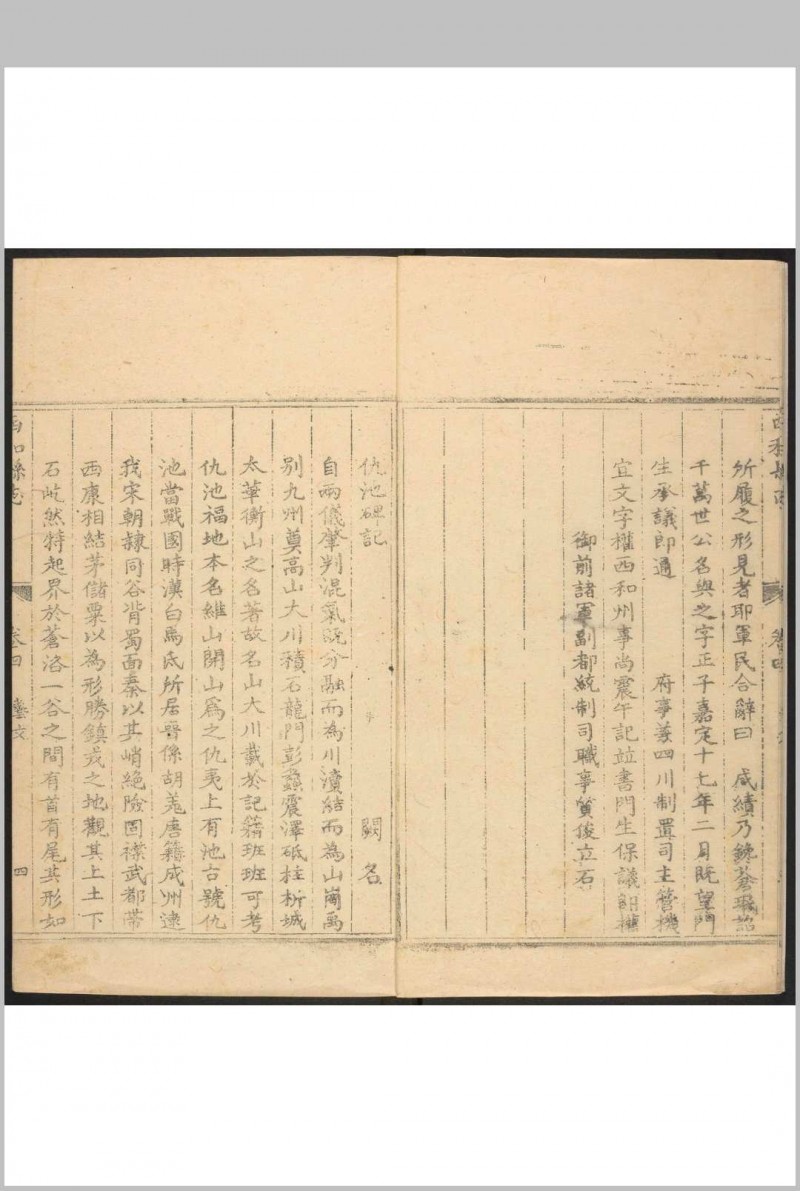 所履之形見者耶軍民合辭曰 咸績乃鑱蒼珉詔
千萬世公名與之字正子嘉定十七年二月既望門
生承議郎通 府事兼四川制置司主管機
宜文字權西和州事尚震午記竝書門生保議郎權
御前諸軍副都統制司職事質俊立石
仇池碑記 闕名
自兩儀肇判混氣既分融而為川瀆結而為山崗禹
別九州奠高山大川積石龍門彭蠡震澤砥柱析城
太華衡山之名著故名山大川載於記籍班班可考
仇池福地本名維山開山為之仇夷上有池古號仇
池當戰國時漢白馬氐所居晉係胡羌唐籍成州逮
我宋朝隸同谷背蜀面秦以其峭絕險固襟武都帶
西康相結茅儲粟以為形勝鎮戎之地觀其上土下
石屹然特起界於蒼洛一谷之間有首有尾其形如
西和縣志 卷四 藝文 四